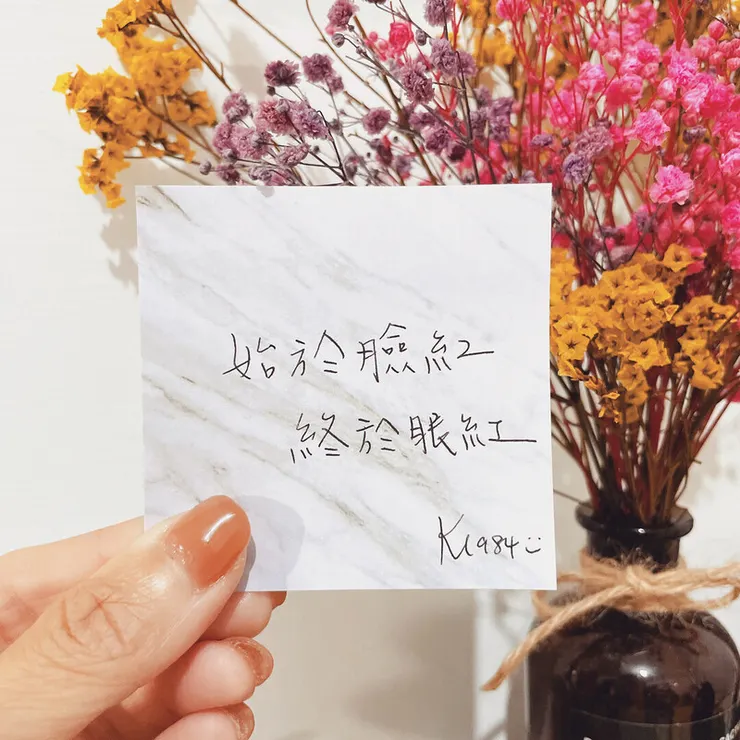 始於臉紅
終於眼紅
K1984